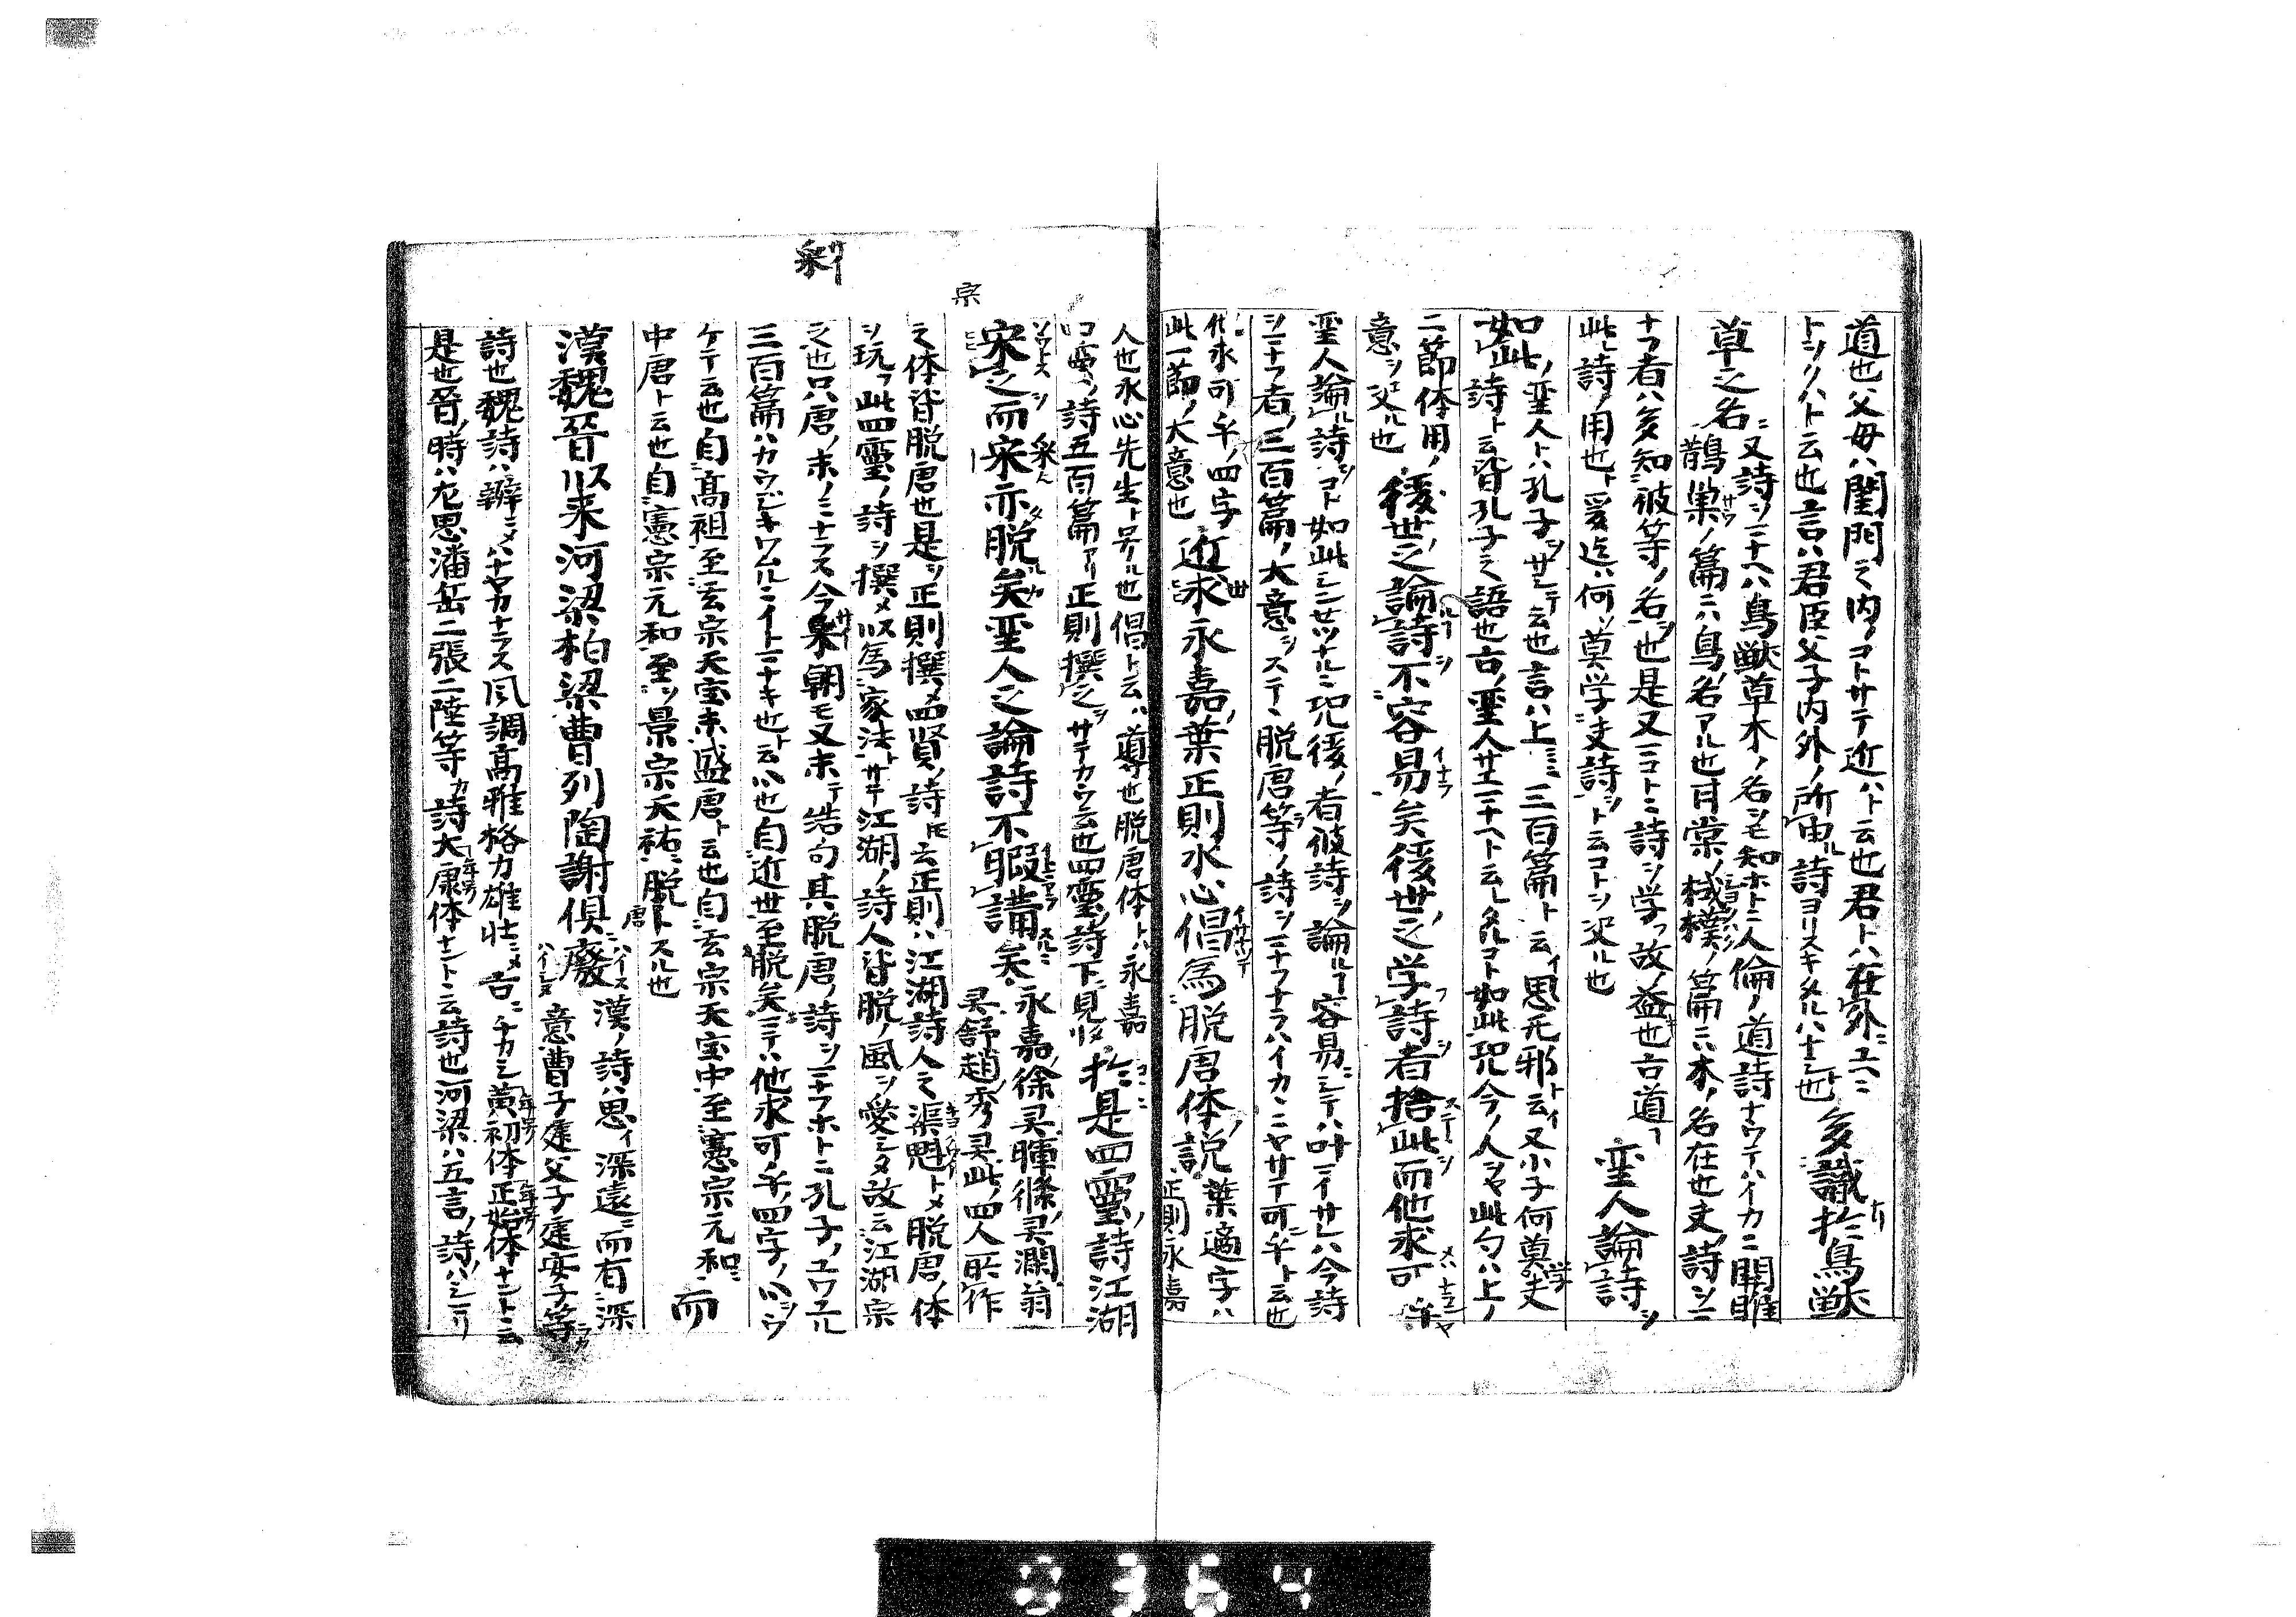 道也父母ハ閨門之内ノコトサテ近ハト云也君トハ在外ユヱニ
トシリハト云也言ハ君臣父子内外ノ所由ル詩ヨリスキタルハナシ也
多識於鳥獣
草之名
又詩ヲマナヘハ鳥獣草木ノ名シモ知ホトニ人倫ノ道詩ナウテハイカニ関雎
鵲巣ノ篇ニハ鳥名アル也甘棠ノ棫樸ノ篇ニハ木ノ名在也夫詩ヲマ
ナフ者ハ多知彼等ノ名ヲ也是又マコトニ詩ヲ学フ故ノ益也古道フ
此詩ノ用也ト爰迄ハ何莫学夫詩ヲト云コトヲ述ル也
聖人論詩
如此
聖人トハ孔子ヲサシテ云也言ハ上ニ三百篇ト云イ思无邪ト云イ又小子何莫学夫
詩ト云皆孔子之語也言聖人サヱマナヘト云レタルコト如此況今ノ人ヲヤ此句ハ上ノ
二節体用ノ
意ヲ述ル也
後世之論詩不容易矣後世之学詩者捨此而他求可乎
聖人論ル詩ヲコト如此シンセツナルニ況後ノ者彼詩ヲ論ルフ容易ニシテハ叶マイサレハ今詩
ヲマナフ者三百篇ノ大意ヲステヽ脱唐等ノ詩ヲマナフナラハイカニヤサテ可乎ト云也
他求可乎ノ四字
此一節ノ大意也
近世永嘉葉正則水心倡為脱唐体説
葉適字ハ
正則永嘉
人也水心先生ト号ル也倡ト云ハ導也脱唐体トハ永嘉
四霊ノ詩五百篇アリ正則撰之ヲサテカウ云也四霊ノ詩下見ル
於是四霊詩江湖
宗之而宋亦脱矣聖人之論詩不暇講矣
永嘉徐霊暉徐霊淵翁
霊舒趙霊秀此四人所作
之体皆脱唐也是ヲ正則撰メ四賢ノ詩ト云正則ハ江湖詩人之渠魁トメ脱唐ノ体
ヲ玩フ此四霊ノ詩ヲ撰メ以為家法トサテ江湖ノ詩人皆脱ノ風ヲ愛シタ故云江湖宗
之也只ハ唐ノ末ノミナラス今宋朝モ又末テ結句其脱唐ノ詩ヲマナフホトニ孔子ノユウユル
三百篇ハカウビキワムルニイトマナキ也ト云心也自近世至脱矣マテハ他求可乎ノ四字ノ心ヲウ
ケテ云也自高祖至玄宗天宝末盛唐ト云也自玄宗天宝中至憲宗元和ニ
中唐ト云也自憲宗元和至ヲ景宗天祐ニ脱唐トスル也
而
漢魏晋以来河梁柏梁曹列陶謝倶廃
漢ノ詩ハ思イ深遠ニ而有深
意曹子建父子建安子等
詩也魏詩ハ辨ニメハナヤカナラス風調高雅格力雄壮ニメ古ニチカシ黄初体正始体ナントヽ云
是也晋ノ時ハ左思潘岳二張二陸等カ詩大康体ナントヽ云詩也河梁ハ五言ノ詩ハシマリ
宗
0364